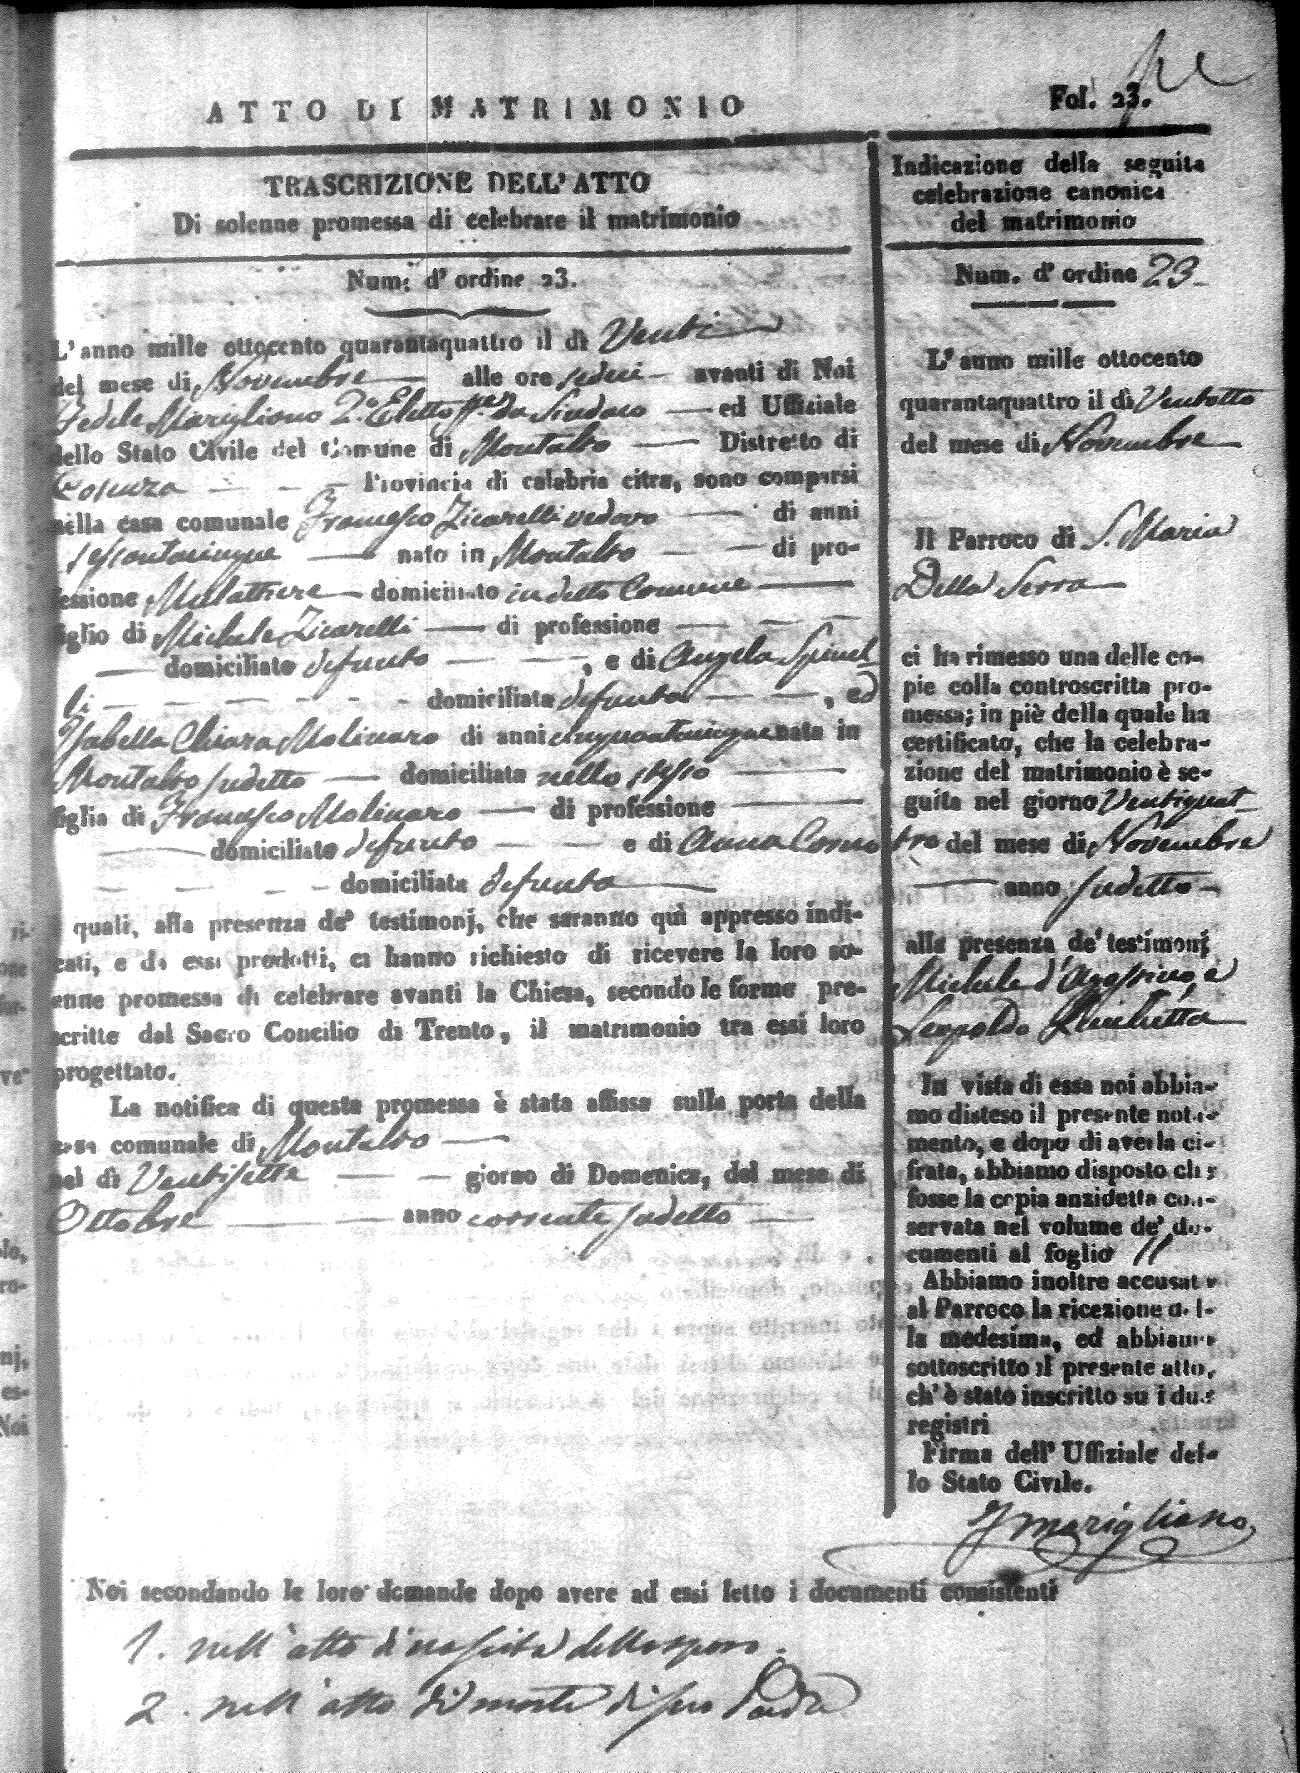 ATTO DI MATRIMONIO
Fol. 23.
TRASCRIZIONE DELL'ATTO
Di solenne promessa di celebrare il matrimonio
Num. d' ordine 23.
L'anno mille ottocento quarantaquattro il dì Venti
del mese di Novembre alle ore sedici avanti di Noi
Fedele Marigliano 2.º Eletto ff.e da Sindaco ed Uffiziale
dello Stato Civile del Comune di Montalto Distretto di
Cosenza Provincia di calabria citra, sono comparsi
nella casa comunale Francesco Zicarelli vedovo di anni
sessantacinque nato in Montalto di pro-
fessione domiciliato in detto Comune
figlio di Michele Zicarelli di professione
domiciliato defunto , e di Angela Spinel
li domiciliata defunta , ed
Isabella Chiara Molinaro di anni cinquantacinque nata in
Montalto sudetto domiciliata nello stesso
figlia di Francesco Molinaro di professione
domiciliato defunto e di Anna
domiciliata defunta
quali, alla presenza de' testimonj, che saranno qui appresso indi-
cati, e da essi prodotti, ci hanno richiesto di ricevere la loro so-
enne promessa di celebrare avanti la Chiesa, secondo le forme pre-
scritte dal Sacro Concilio di Trento, il matrimonio tra essi loro
progettato.
La notifica di questa promessa è stata affissa sulla porta della
casa comunale di Montalto
nel dì Ventisette giorno di Domenica, del mese di
Ottobre anno corrente sudetto
Indicazione della seguita
celebrazione canonica
del matrimonio
Num. d' ordine 23
L'anno mille ottocento
quarantaquattro il dì Ventotto
del mese di Novembre
Il Parroco di S. Maria
Della Serra
ci ha rimesso una delle co-
pie colla controscritta pro-
messa; in piè della quale ha
certificato, che la celebra-
zione del matrimonio è se-
guita nel giorno Ventiquat
tro del mese di Novembre
anno sudetto
alla presenza de' testimonj
Michele d'
Leopoldo
In vista di essa noi abbia-
mo disteso il presente noti-
mento, e dopo di averla ci-
frata, abbiamo disposto che
fosse la copia anzidetta con-
servata nel volume de' do-
cumenti al foglio 11
Abbiamo inoltre accusato
al Parroco la ricezione del-
la medesima, ed abbiamo
sottoscritto il presente atto,
ch' è stato inscritto su i due
registri
Firma dell' Uffiziale del-
lo Stato Civile.
F Marigliano
Noi secondando le loro domande dopo avere ad essi letto i documenti consistenti
1. nell'atto di nascita dello sposo.
2. nell'atto di morte di suo Padre